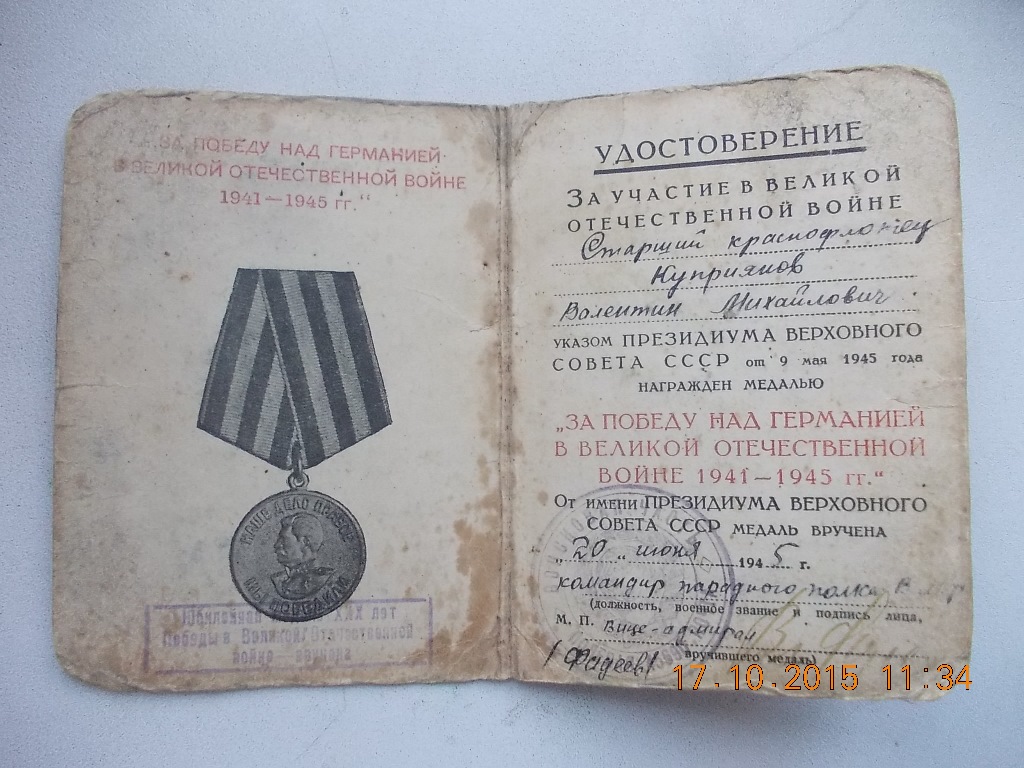 „ЗА ПОБЕДУ НАД ГЕРМАНИЕЙ
В ВЕЛИКОЙ ОТЕЧЕСТВЕННОЙ ВОЙНЕ
1941—1945 гг.“
НАШЕ ДЕЛО ПРАВОЕ
МЫ ПОБЕДИЛИ
Юбилейная XXX лет
Победы в Великой Отечественной
войне вручена
УДОСТОВЕРЕНИЕ
ЗА УЧАСТИЕ В ВЕЛИКОЙ
ОТЕЧЕСТВЕННОЙ ВОЙНЕ
Старший краснофлотец
Куприянов
Валентин Михайлович
УКАЗОМ ПРЕЗИДИУМА ВЕРХОВНОГО
СОВЕТА СССР от 9 мая 1945 года
НАГРАЖДЕН МЕДАЛЬЮ
„ЗА ПОБЕДУ НАД ГЕРМАНИЕЙ
В ВЕЛИКОЙ ОТЕЧЕСТВЕННОЙ
ВОЙНЕ 1941—1945 гг.“
От имени ПРЕЗИДИУМА ВЕРХОВНОГО
СОВЕТА СССР МЕДАЛЬ ВРУЧЕНА
„20„ июня 1945 г.
командир парадного полка ВМФ
(должность, военное звание и подпись лица,
М. П. Вице-адмирал
вручившего медаль)
/Фадеев/
17.10.2015 11:34